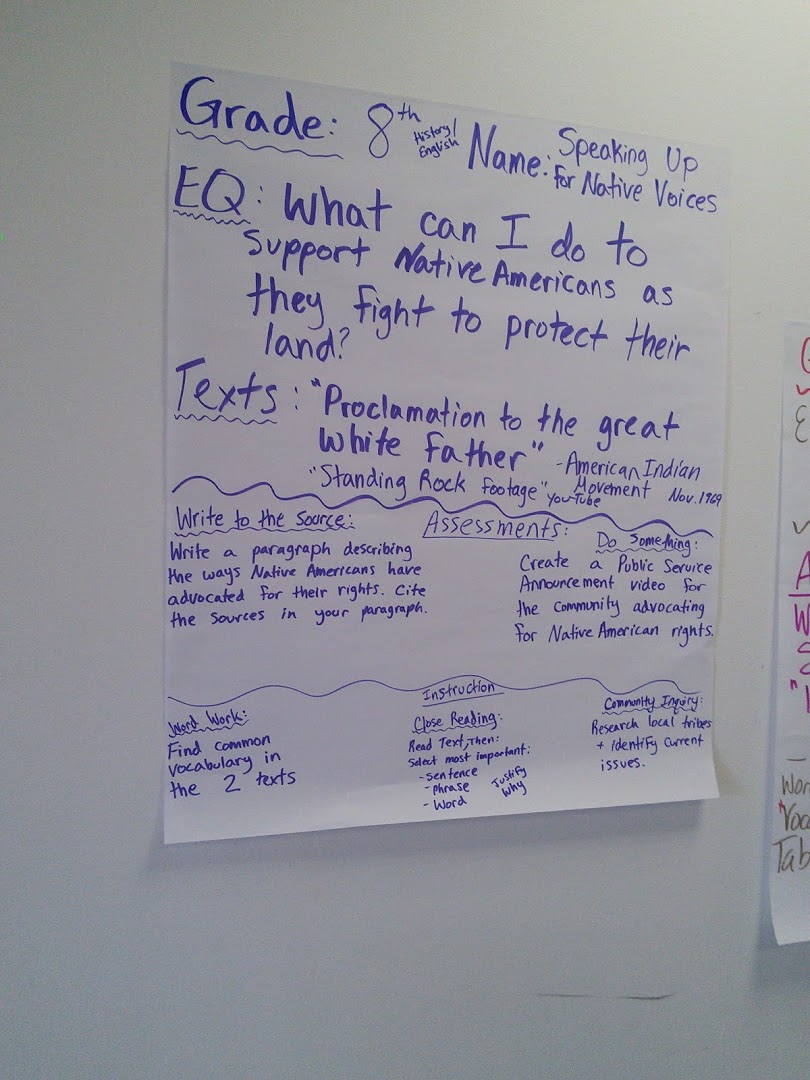 Grade: 8th History/ English Name: Speaking Up
for Native Voices
EQ: What can I do to
support Native Americans as
they fight to protect their
land?
Texts: "Proclamation to the great
white father" - American Indian
Movement Nov. 1969
"Standing Rock footage" YouTube
Assessments:
Write to the Source:
Write a paragraph describing
the ways Native Americans have
advocated for their rights. Cite
the sources in your paragraph.
Do Something:
Create a Public Service
Announcement video for
the community advocating
for Native American rights.
Instruction
Word Work:
Find common
vocabulary in
the 2 texts
Close Reading:
Read Text, Then:
Select most important:
- sentence
- phrase
- Word
Justify
Why
Community Inquiry:
Research local tribes
+ identify current
issues.